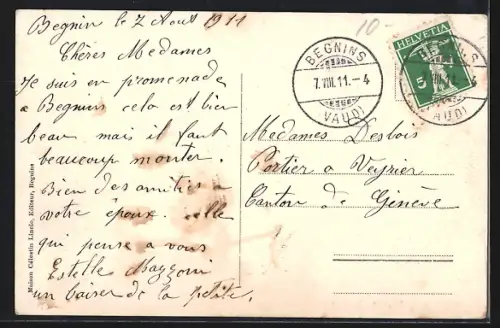 Begnin le 7 Aout 1911
Chères Medames
Je suis en promenade
a Begnun cela est bien
beau mais il faut
beaucoup monter.
Bien des amitiés a
votre époux. celle
qui pense a vous
Estelle Mazzoni
un baiser de la petite.
10-
BEGNINS
7.VIII.11.-4
(VAUD)
HELVETIA
5
BEGNINS
VIII.11.-4
(VAUD)
Medames Desbois
Portier a Veyrier
Canton de Genève
Maison Célestin Lincio, Editeur, Begnins